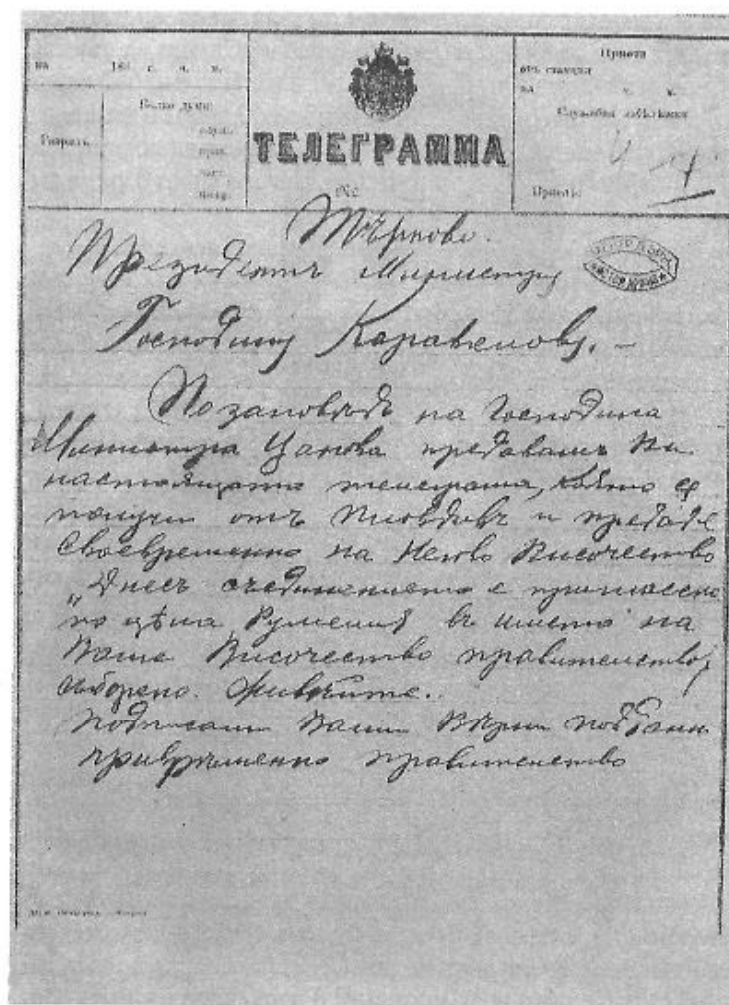 на 188 г. ч. м.
Разрядъ
Колко думи:
ТЕЛЕГРАММА
№
Приета
отъ станция
на ч. м.
Служебни забѣлѣжки
Приелъ:
Търново.
Президентъ Министру
Господину Каравелову. –
По заповѣдь на Господина
Министра Цанова предавамъ Ви
настоящата телеграма, който се
получи отъ Пловдивъ и предаде
своевременно на Негово Височество
„Днесъ съединението е провъзгласено
по цѣла Румелия въ името на
Ваше Височество правителство,
съборено. Живѣйте..
подписали Ваши Вѣрни подданни
привременно правителство